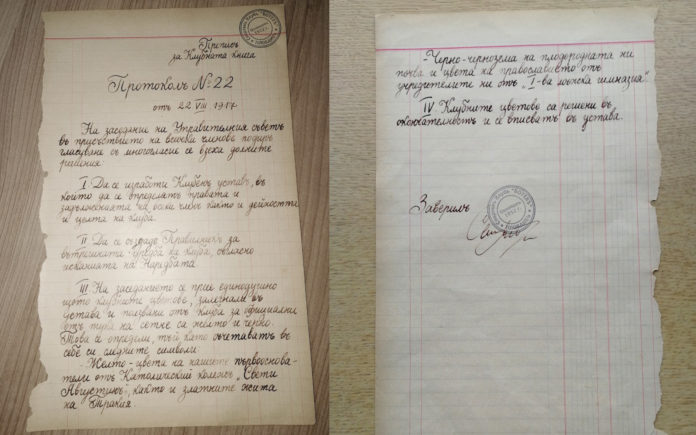 Преписъ
за Клубната книга
Протоколъ №22
отъ 22 VIII 1917.
На заседание на Управителния съветъ
въ присъствието на всички членове подиръ
гласуване съ многогласие се взеха долните
решения:
I. Да се изработи Клубенъ уставъ, въ
който да се определятъ правата и
задълженията на всеки членъ както и дейността
и целта на клуба.
II Да се създаде Правилникъ за
вътрешната уредба на клуба, съгласно
исканията на Наредбата.
III. На заседанието се прие единодушно
щото клубните цветове, залегнали въ
устава и ползвани отъ клуба за официални
отъ тука на сетне са жълто и черно.
Това се определи, тъй като съчетаватъ въ
себе си следните символи:
-Жълто-цвета на нашите първооснова-
тели отъ Католический колежъ „Свети
Августинъ", както и златните жита
на Тракия.
-Черно-чернозема на плодородната ни
почва и цвета на православието отъ
учредителите ни отъ „I-ва мъжка гимназия".
IV. Клубните цветове са решени въ
окончателность и се вписватъ въ устава.
Заверилъ